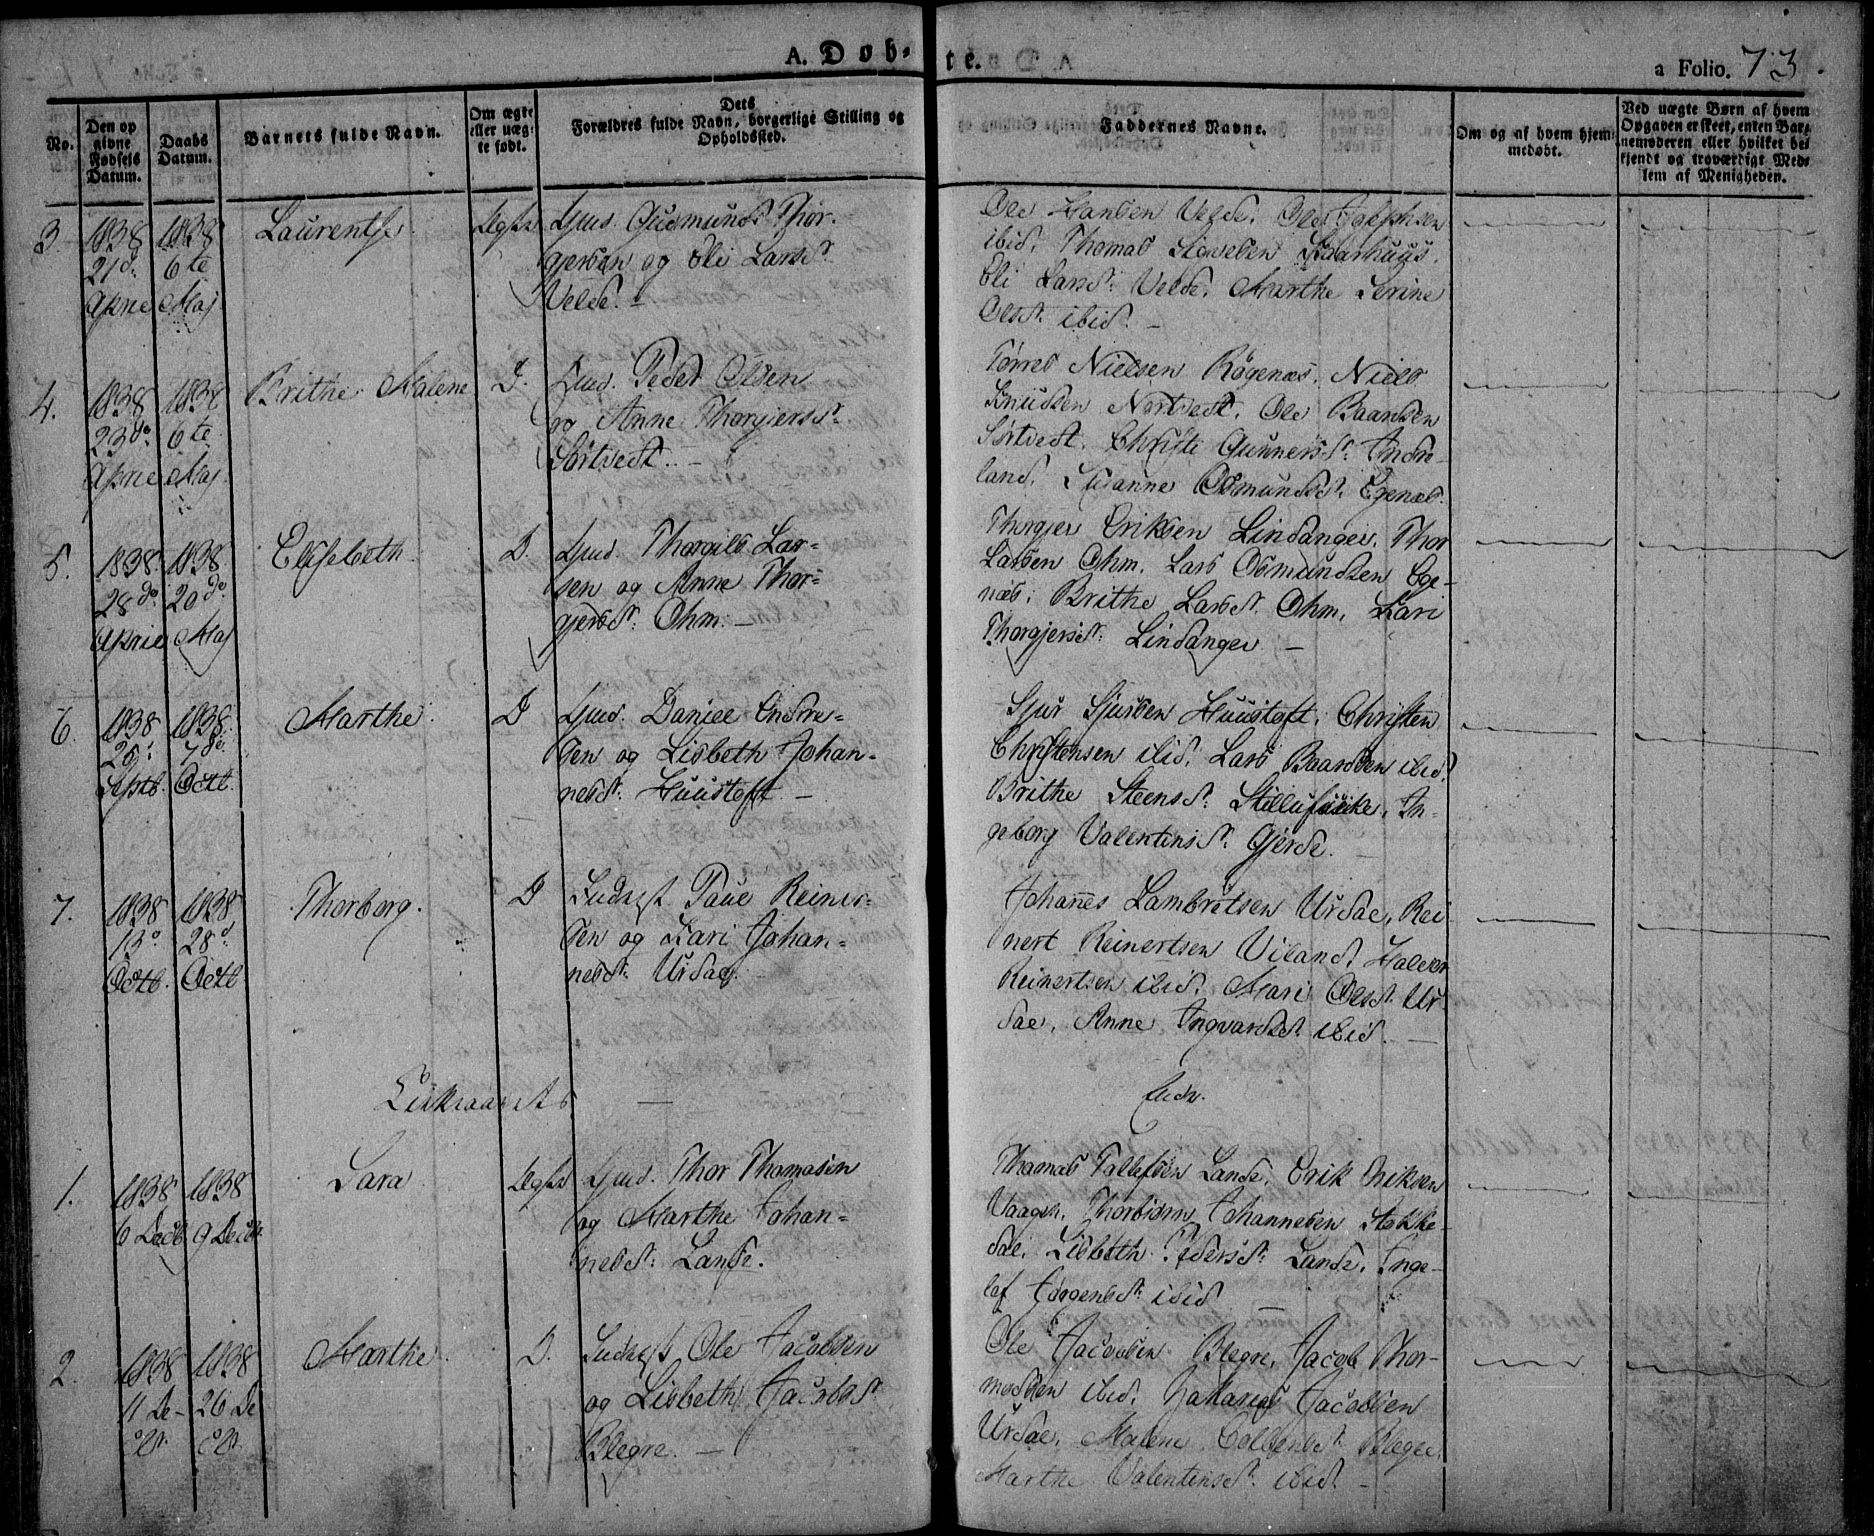 A. Døb-
te.
a Folio. 73.
No.
Den op
givne
Fødsels
Datum.
Daabs
Datum.
Barnets fulde Navn.
Om ægte
eller uæg-
te født.
Dets
Forældres fulde Navn, borgerlige Stilling og
Opholdssted.
Faddernes Navne.
Om og af hvem hjem-
medøbt.
Ved uægte Børn af hvem
Opgaven er skeet, enten Bar-
nemoderen eller hvilket be-
kjendt og troværdigt Med-
lem af Menigheden.
3.
1838
21d.
April
1838
6te
Maj
Laurentse
Ægte
Gmd. Gudmund Thor-
gjersen og Eli Larsd.
Velde. -
Ole Hansen Velde, Ole Josephsen
ibid. Thomas Skaarhuus.
Eli Larsd: Velde. Marthe Serine
Olsd. ibid. -
4.
1838
23do
April
1838
6te
Maj
Brithe Malene
D.
Gmd. Peder Olsen
og Anne Thorgiersd.
Sørtvedt. -
Tørres Nielsen Røgenæs, Niels
Knudsen Nørtvedt, Ole Baardsen
Sørtvedt. Christi Gunnersd: Indre-
land, Susanne Osmundsd. Egenæs
5.
1838.
28do
April
1838.
20do
Maj
Elisebeth
D.
Gmd. Thorgils Lar-
sen og Anne Thor-
gjersd. Ohm. -
Thorgjer Eriksen Lindanger. Thor
Larsen Ohm. Lars Osmundsen Ege-
næs. Brithe Larsd. Ohm, Kari
Thorgjersd. Lindanger -
6.
1838
25.
Septb.
1838.
7de
Octb.
Marthe
D
Gmd. Daniel Endre-
sen og Lisbeth Johan-
nesd: Huustoft -
Sjur Sjursen Huustoft, Christen
Christensen ibid. Lars Baardsen ibid.
Brithe Steensd: In-
geborg Valentinsd. Gjerde.
7.
1838
13d
Octb.
1838
28d.
Octb
Thorborg.
D
Inderst Paul Reiner-
sen og Kari Johan-
nesd. Urdal.
Johanes Lambretsen Urdal, Rei-
nert Reinertsen Viland. Halvor
Reinertsen ibid. Mari Olsd. Ur-
dal, Anne Ingvardsd. ibid. -
Kirkeaarets -
Ende.
1.
1838
6 Decb.
1838
9 Decbr
Sara
Ægte
Gmd. Thor Thomasen
og Marthe Johan-
nesd: Lande.
Thomas Tollefsen Lande, Erik Eriksen
Vaagen, Thorbiørn Johannesen Stokke-
dal, Lisbeth Pedersd: Lande. Inge-
lef Jørgensd. ibid -
2.
1838
11 De-
cbr.
1838
26 De
cbr
Marthe
D.
Inderst Ole Jacobsen
og Lisbeth Jacobsd.
Blegre. -
Ole Jacobsen Blegre, Jacob Thor-
modsen ibid, Zakarias Jacobsen
Urdal. Malene Blegre.
Marthe Valentinsd. ibid. -